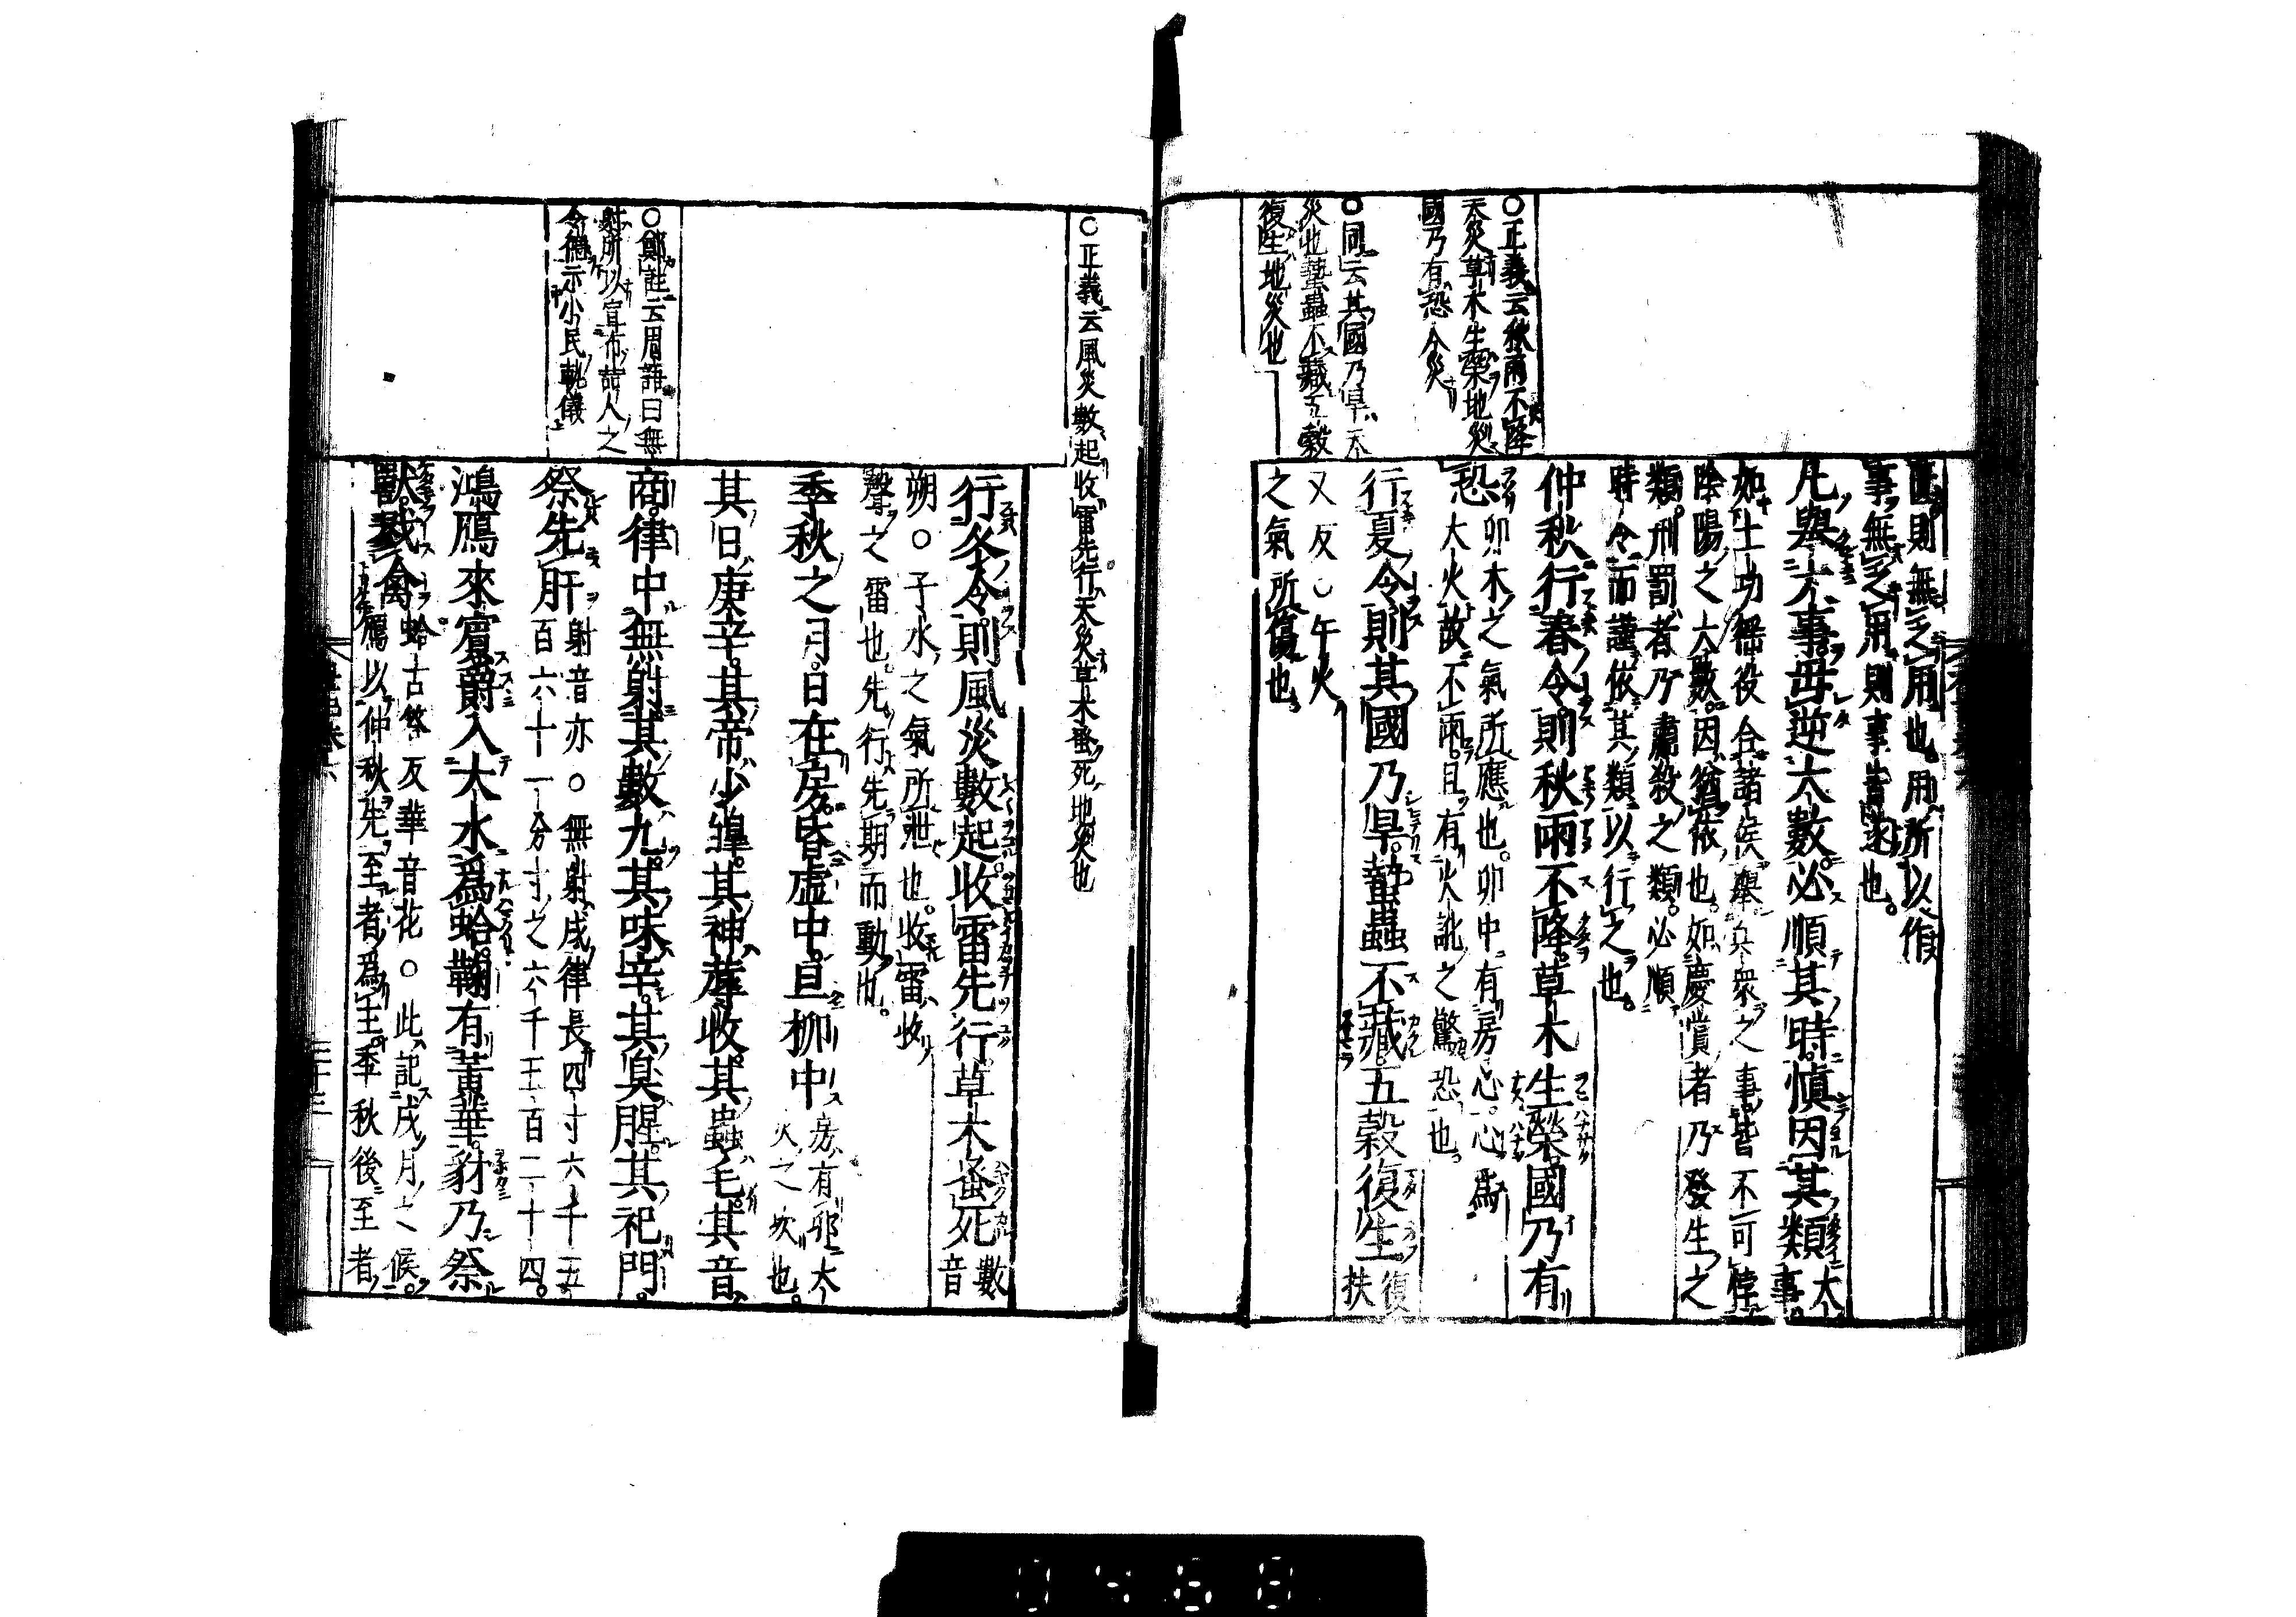 〇正義云秋雨不降
天災草木生榮地災
國乃有恐人災
〇同云其國乃旱天
災也蟄蟲不藏五穀
復生地災也
匱則無乏用也用所以作
事無乏用則事皆遂也
凡舉大事毋逆大數必順其時愼因其類大事
如土功徭役合諸侯舉兵衆之事皆不可悖
陰陽之大數因猶依也如慶賞者乃發生之
類刑罰者乃肅殺之類必順
時令而謹依其類以行之也
仲秋行春令則秋雨不降草木生榮國乃有
恐卯木之氣所應也卯中有房心心爲
大火故不雨且有火訛之驚恐也
行夏令則其國乃旱蟄蟲不藏五穀復生復扶
又反〇午火
之氣所傷也
〇正義云風災數起收雷先行天災草木蚤死地災也
〇鄭註云周語曰無
射所以宣布哲人之
令德示小民軌儀
行冬令則風災數起收雷先行草木蚤死數音
朔〇子水之氣所泄也收雷收
聲之雷也先行先期而動也
季秋之月日在房昏虛中旦柳中房有卯大
火之次也
其日庚辛其帝少皥其神蓐收其蟲毛其音
商律中無射其數九其味辛其臭腥其祀門
祭先肝射音亦〇無射戌律長四寸六千五
百六十一分寸之六千五百二十四
鴻鴈來賓爵入大水爲蛤鞠有黃華豺乃祭
獸戮禽蛤古答反華音花〇此記戌月之候
鴈以仲秋先至者爲主季秋後至者
二十三